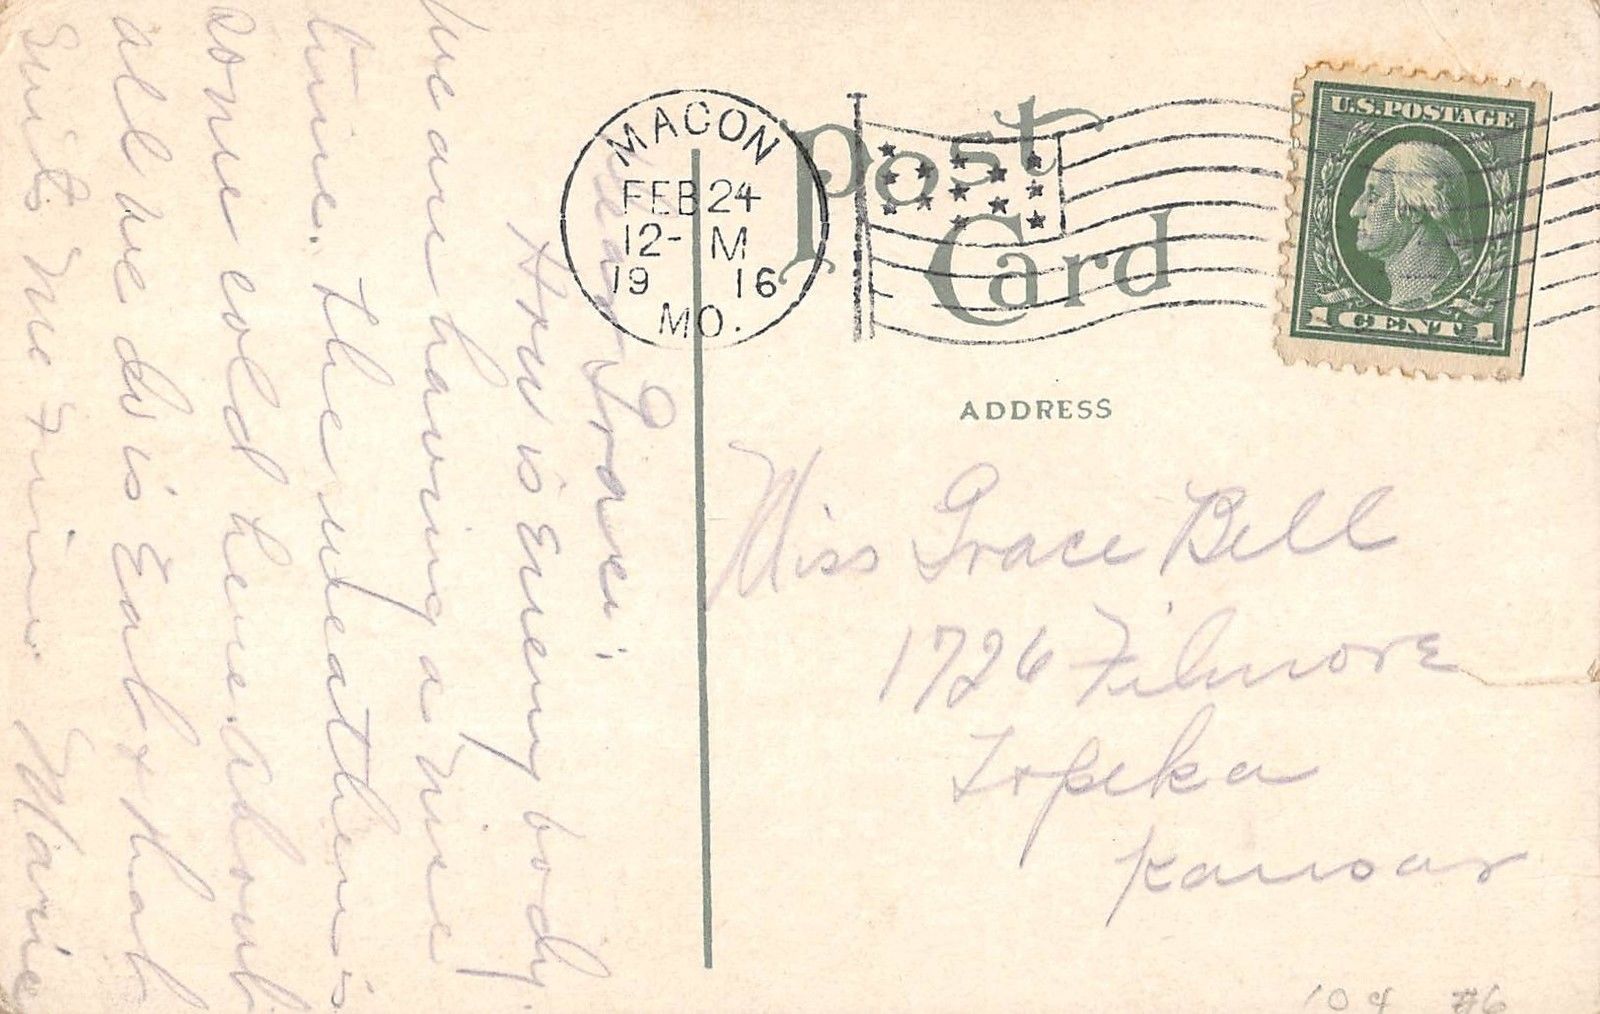 Dear Grace:
How is Every body.
We are having a nice
time. the weather is
some cold here. about
all we do is Eat & that
suits me fine. Marie
MACON
FEB 24
12- M
19 16
MO.
Post
Card
U.S.POSTAGE
1 CENT 1
ADDRESS
Miss Grace Bell
1726 Filmore
Topeka
Kansas
104 #6